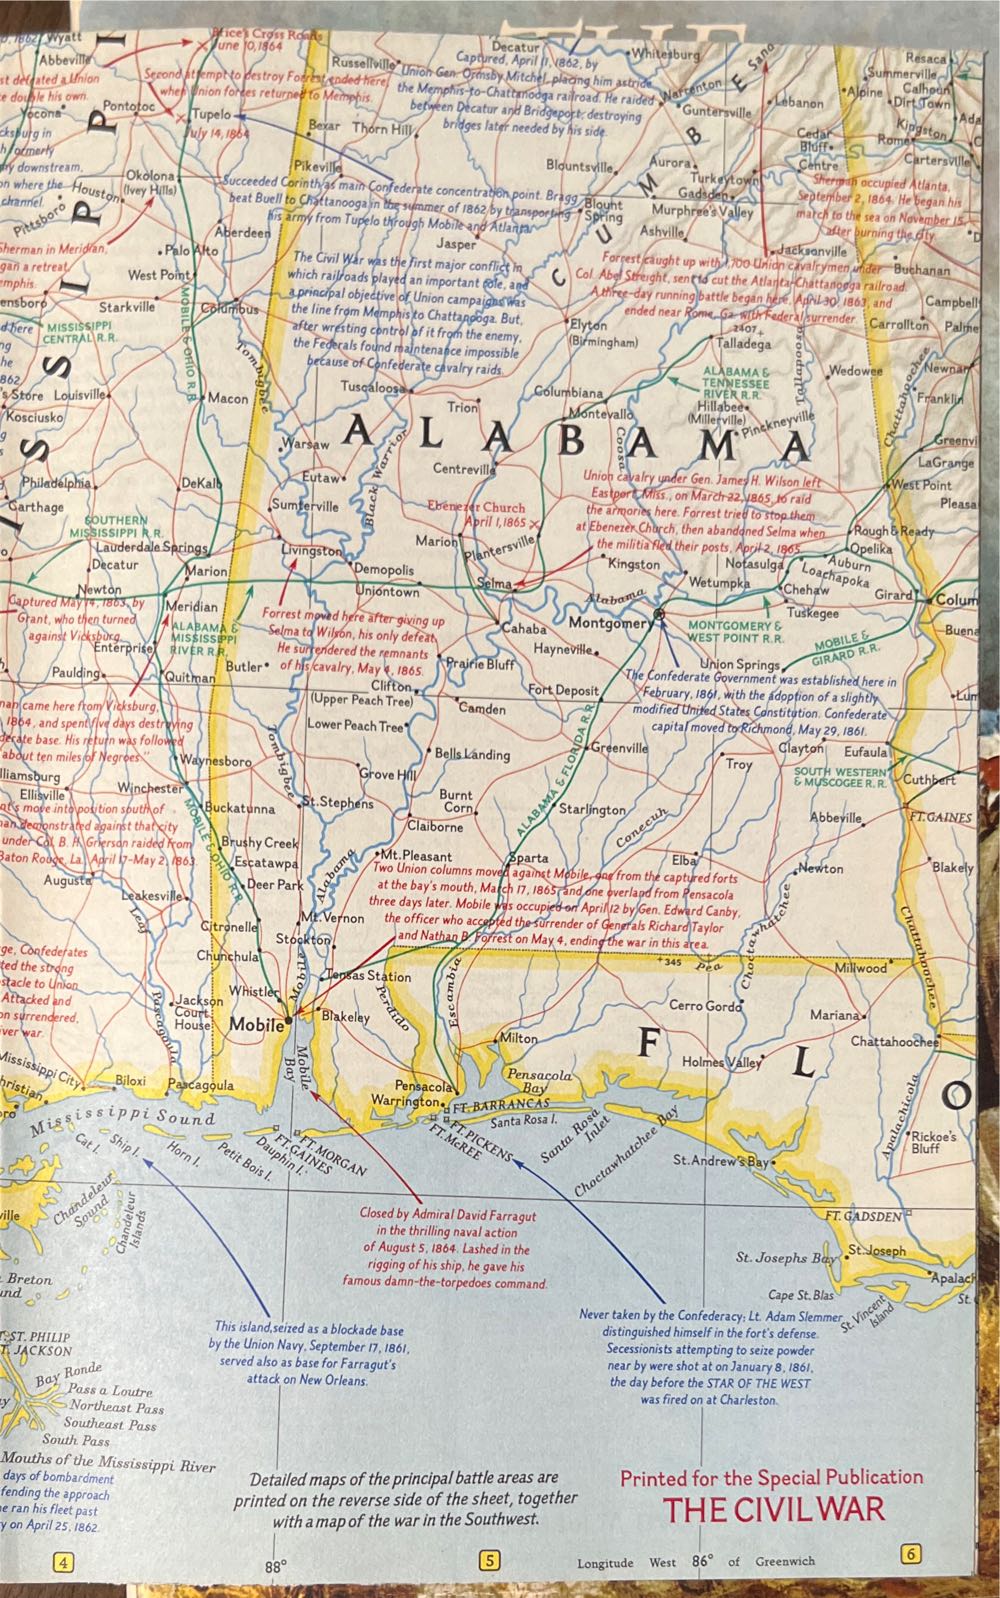 Wyatt
Abbeville
Brice's Cross Roads
June 10, 1864
Second attempt to destroy Forrest ended here,
when Union forces returned to Memphis.
Pontotoc
Tupelo
July 14, 1864
Okolona
(Ivey Hills)
Houston
Pittsboro
Aberdeen
Palo Alto
West Point
Starkville
Columbus
MISSISSIPPI
CENTRAL R.R.
MOBILE & OHIO R.R.
Louisville
Kosciusko
Macon
Philadelphia
DeKalb
Carthage
SOUTHERN
MISSISSIPPI R.R.
Lauderdale Springs
Decatur
Marion
Newton
Meridian
Captured May 14, 1863, by
Grant, who then turned
against Vicksburg.
Enterprise
ALABAMA &
MISSISSIPPI
RIVER R.R.
Paulding
Quitman
Waynesboro
Winchester
Ellisville
Buckatunna
MOBILE & OHIO R.R.
Augusta
Leakesville
Leaf
Pascagoula
Jackson
Court
House
Russellville
Decatur
Captured, April 11, 1862, by
Union Gen. Ormsby Mitchel, placing him astride
the Memphis-to-Chattanooga railroad. He raided
between Decatur and Bridgeport, destroying
bridges later needed by his side.
Whitesburg
Warrenton
Guntersville
Lebanon
Sand
Bexar
Thorn Hill
Pikeville
Succeeded Corinth as main Confederate concentration point. Bragg
beat Buell to Chattanooga in the summer of 1862 by transporting
his army from Tupelo through Mobile and Atlanta.
Blountsville
Aurora
Turkeytown
Gadsden
Murphree's Valley
Blount
Spring
Ashville
Jasper
CUMBE
Cedar
Bluff
Centre
Resaca
Summerville
Calhoun
Alpine
Dirt Town
Kingston
Rome
Cartersville
Sherman occupied Atlanta,
September 2, 1864. He began his
march to the sea on November 15,
after burning the city.
Jacksonville
Buchanan
Forrest caught up with 1,700 Union cavalrymen under
Col. Abel Streight, sent to cut the Atlanta-Chattanooga railroad.
A three-day running battle began here, April 30, 1863, and
ended near Rome, Ga. with Federal surrender.
The Civil War was the first major conflict in
which railroads played an important role, and
a principal objective of Union campaigns was
the line from Memphis to Chattanooga. But,
after wresting control of it from the enemy,
the Federals found maintenance impossible
because of Confederate cavalry raids.
Elyton
(Birmingham)
2407
Talladega
Campbell
Carrollton
Palme
Wedowee
Newnan
Franklin
ALABAMA &
TENNESSEE
RIVER R.R.
Tallapoosa
Chattahoochee
Tombigbee
Tuscaloosa
Columbiana
Montevallo
Hillabee
(Millerville)
Pinckneyville
Trion
ALABAMA
Warsaw
Black Warrior
Centreville
Coosa
Greenvi
LaGrange
Eutaw
Sumterville
Union cavalry under Gen. James H. Wilson left
Eastport, Miss., on March 22, 1865, to raid
the armories here. Forrest tried to stop them
at Ebenezer Church, then abandoned Selma when
the militia fled their posts, April 2, 1865.
West Point
Pleasa
Ebenezer Church
April 1, 1865
Marion
Plantersville
Rough & Ready
Opelika
Livingston
Demopolis
Kingston
Notasulga
Auburn
Loachapoka
Uniontown
Selma
Wetumpka
Chehaw
Girard
Colum
Alabama
Montgomery
Tuskegee
MONTGOMERY &
WEST POINT R.R.
MOBILE &
GIRARD R.R.
Buena
Cahaba
Forrest moved here after giving up
Selma to Wilson, his only defeat.
He surrendered the remnants
of his cavalry, May 4, 1865.
Hayneville
Union Springs
Butler
Prairie Bluff
Clifton
(Upper Peach Tree)
Fort Deposit
The Confederate Government was established here in
February, 1861, with the adoption of a slightly
modified United States Constitution. Confederate
capital moved to Richmond, May 29, 1861.
Lum
Camden
Lower Peach Tree
Tombigbee
Bells Landing
Greenville
ALABAMA & FLORIDA R.R.
Troy
Clayton
Eufaula
SOUTH WESTERN
& MUSCOGEE R.R.
Cuthbert
Grove Hill
Burnt
Corn
St. Stephens
Starlington
Conecuh
Abbeville
FT. GAINES
Claiborne
Brushy Creek
Escatawpa
Mt. Pleasant
Sparta
Elba
Newton
Blakely
Deer Park
Alabama
Two Union columns moved against Mobile, one from the captured forts
at the bay's mouth, March 17, 1865, and one overland from Pensacola
three days later. Mobile was occupied on April 12 by Gen. Edward Canby,
the officer who accepted the surrender of Generals Richard Taylor
and Nathan B. Forrest on May 4, ending the war in this area.
Choctawhatchee
Chattahoochee
Citronelle
Mt. Vernon
Stockton
Chunchula
Tensas Station
Whistler
Mobile
Blakeley
Perdido
Escambia
345
Pea
Millwood
Cerro Gordo
Mariana
Chattahoochee
Holmes Valley
Milton
FLO
Mobile
Bay
Pensacola
Warrington
Pensacola
Bay
FT. BARRANCAS
Santa Rosa I.
FT. PICKENS
FT. McREE
Santa Rosa
Inlet
Choctawhatchee Bay
St. Andrew's Bay
Apalachicola
Rickoe's
Bluff
FT. GADSDEN
St. Josephs Bay
St. Joseph
Cape St. Blas
St. Vincent
Island
Apalach
Mississippi City
Biloxi
Pascagoula
Mississippi Sound
Cat I.
Ship I.
Horn I.
Petit Bois I.
Dauphin I.
FT. GAINES
FT. MORGAN
Chandeleur
Sound
Chandeleur
Islands
Closed by Admiral David Farragut
in the thrilling naval action
of August 5, 1864. Lashed in the
rigging of his ship, he gave his
famous damn-the-torpedoes command.
This island, seized as a blockade base
by the Union Navy, September 17, 1861,
served also as base for Farragut's
attack on New Orleans.
Never taken by the Confederacy; Lt. Adam Slemmer
distinguished himself in the fort's defense.
Secessionists attempting to seize powder
near by were shot at on January 8, 1861,
the day before the STAR OF THE WEST
was fired on at Charleston.
Breton
ST. PHILIP
JACKSON
Bay Ronde
Pass a Loutre
Northeast Pass
Southeast Pass
South Pass
Mouths of the Mississippi River
days of bombardment
fending the approach
he ran his fleet past
y on April 25, 1862.
Detailed maps of the principal battle areas are
printed on the reverse side of the sheet, together
with a map of the war in the Southwest.
Printed for the Special Publication
THE CIVIL WAR
4
88°
5
Longitude West 86° of Greenwich
6